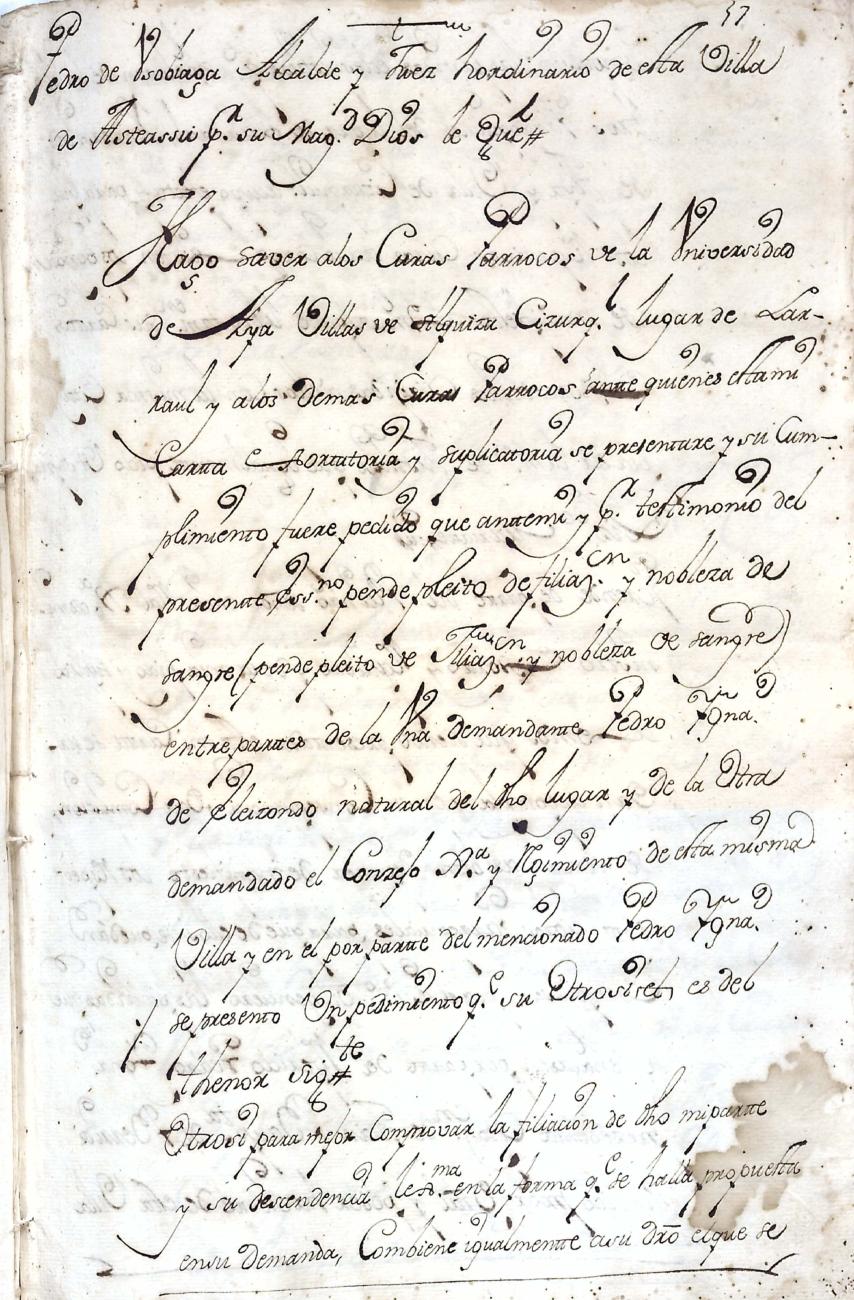 57
Pedro de Vsobiaga Alcalde y Juez hordinario de esta Villa
de Asteassu p.r su Mag.d Dios le Gue
Hago saver alos Curas Parrocos de la Vniversidad
de Aya Villas de Alquiza Cizurq.l lugar de Lar-
raul y alos demas Curas Parrocos ante quienes esta mi
Cartta exsortatoria y suplicatoria se presentare y su Cum-
plimiento fuere pedido que antemi y p.r testimonio del
presentte Ess.no pende pleito de filiaz.on y nobleza de
sangre (pende pleito de filiaz.on y nobleza de sangre)
entre parttes de la Vna demandante Pedro Ygna.o
de Eleizondo natural del dho lugar y de la Otra
demandado el Conzejo y Regimiento de esta misma
Villa y en el por partte del mencionado Pedro Ygna.o
se presento Vn pedimiento q.e su Otrosi es del
thenor sig.te
Otrosi para mejor Comprovar la filiacion de dho mi partte
y su descendencia lex.ma en la forma q.e se halla propuesta
en su demanda, Combiene igualmentte a su dro el que se